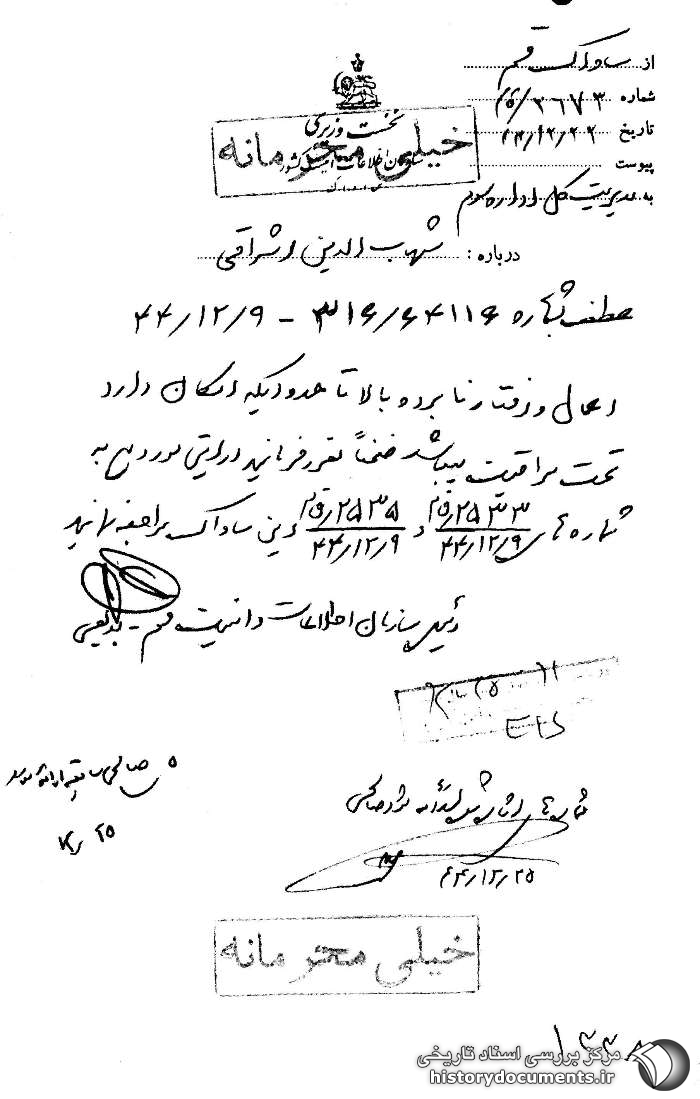 از ساواک قم
شماره ۲۶۷۳/
تاریخ ۴۴/۱۲/۲۲
پیوست
به مدیریت کل اداره سوم
نخست وزیری
سازمان اطلاعات امنیت کشور
خیلی محرمانه
درباره : شهاب الدین اشراقی
عطف بشماره ۳۱۶/۶۴۱۱۶ - ۴۴/۱۲/۹
اعمال و رفتار نامبرده بالا تا حدودیکه امکان دارد
تحت مراقبت میباشد ضمناً مقرر فرمائید در این مورد به
شماره های ۲۵۳۳/ق ۴۴/۱۲/۹ و ۲۵۳۵/ق ۴۴/۱۲/۹ این ساواک مراجعه نمایند
رئیس سازمان اطلاعات و امنیت قم - بدیعی
صالحی
۲۵
۴۴/۱۲/۲۵
خیلی محرمانه
مرکز بررسی اسناد تاریخی
historydocuments.ir